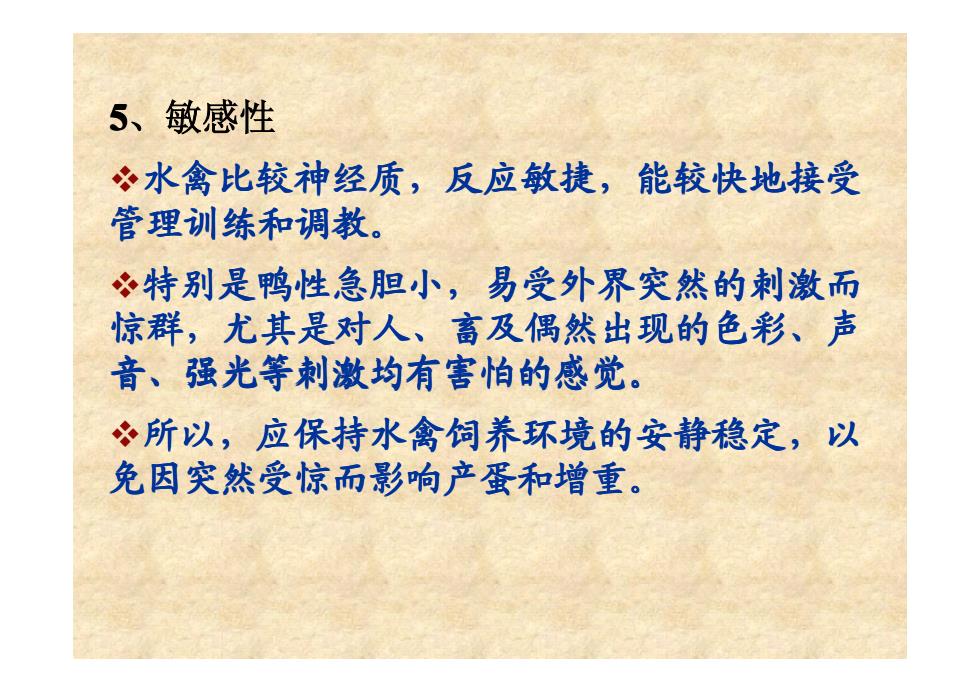 5、敏感性
❖水禽比较神经质，反应敏捷，能较快地接受
管理训练和调教。
❖特别是鸭性急胆小，易受外界突然的刺激而
惊群，尤其是对人、畜及偶然出现的色彩、声
音、强光等刺激均有害怕的感觉。
❖所以，应保持水禽饲养环境的安静稳定，以
免因突然受惊而影响产蛋和增重。